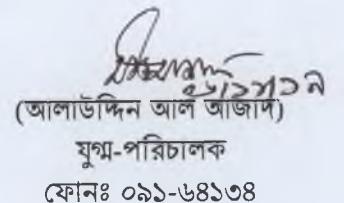 (আলাউদ্দিন আল আজাদ)
যুগ্ম-পরিচালক
ফোনঃ ০৯১-৬৪১৩৪